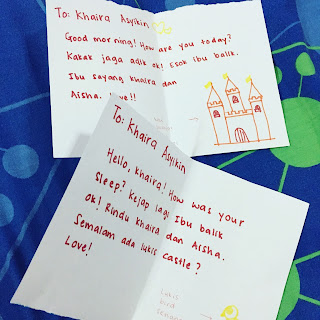 To: Khaira Asyikin
Good morning! How are you today?
Kakak jaga adik ok! Esok ibu balik.
Ibu sayang khaira dan
Aisha. Love!!
To: Khaira Asyikin
Hello, khaira! How was your
sleep? Kejap lagi Ibu balik
ok! Rindu khaira dan Aisha.
Semalam ada lukis castle?
Love!
Lukis